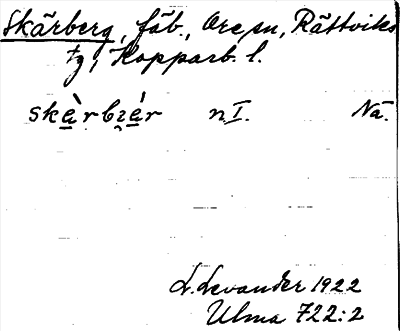 Skärberg, fäb., Ore sn, Rättviks
tg, Kopparb. l.
skèrbɿér n I. Nä.
L. Levander 1922
Ulma 722:2